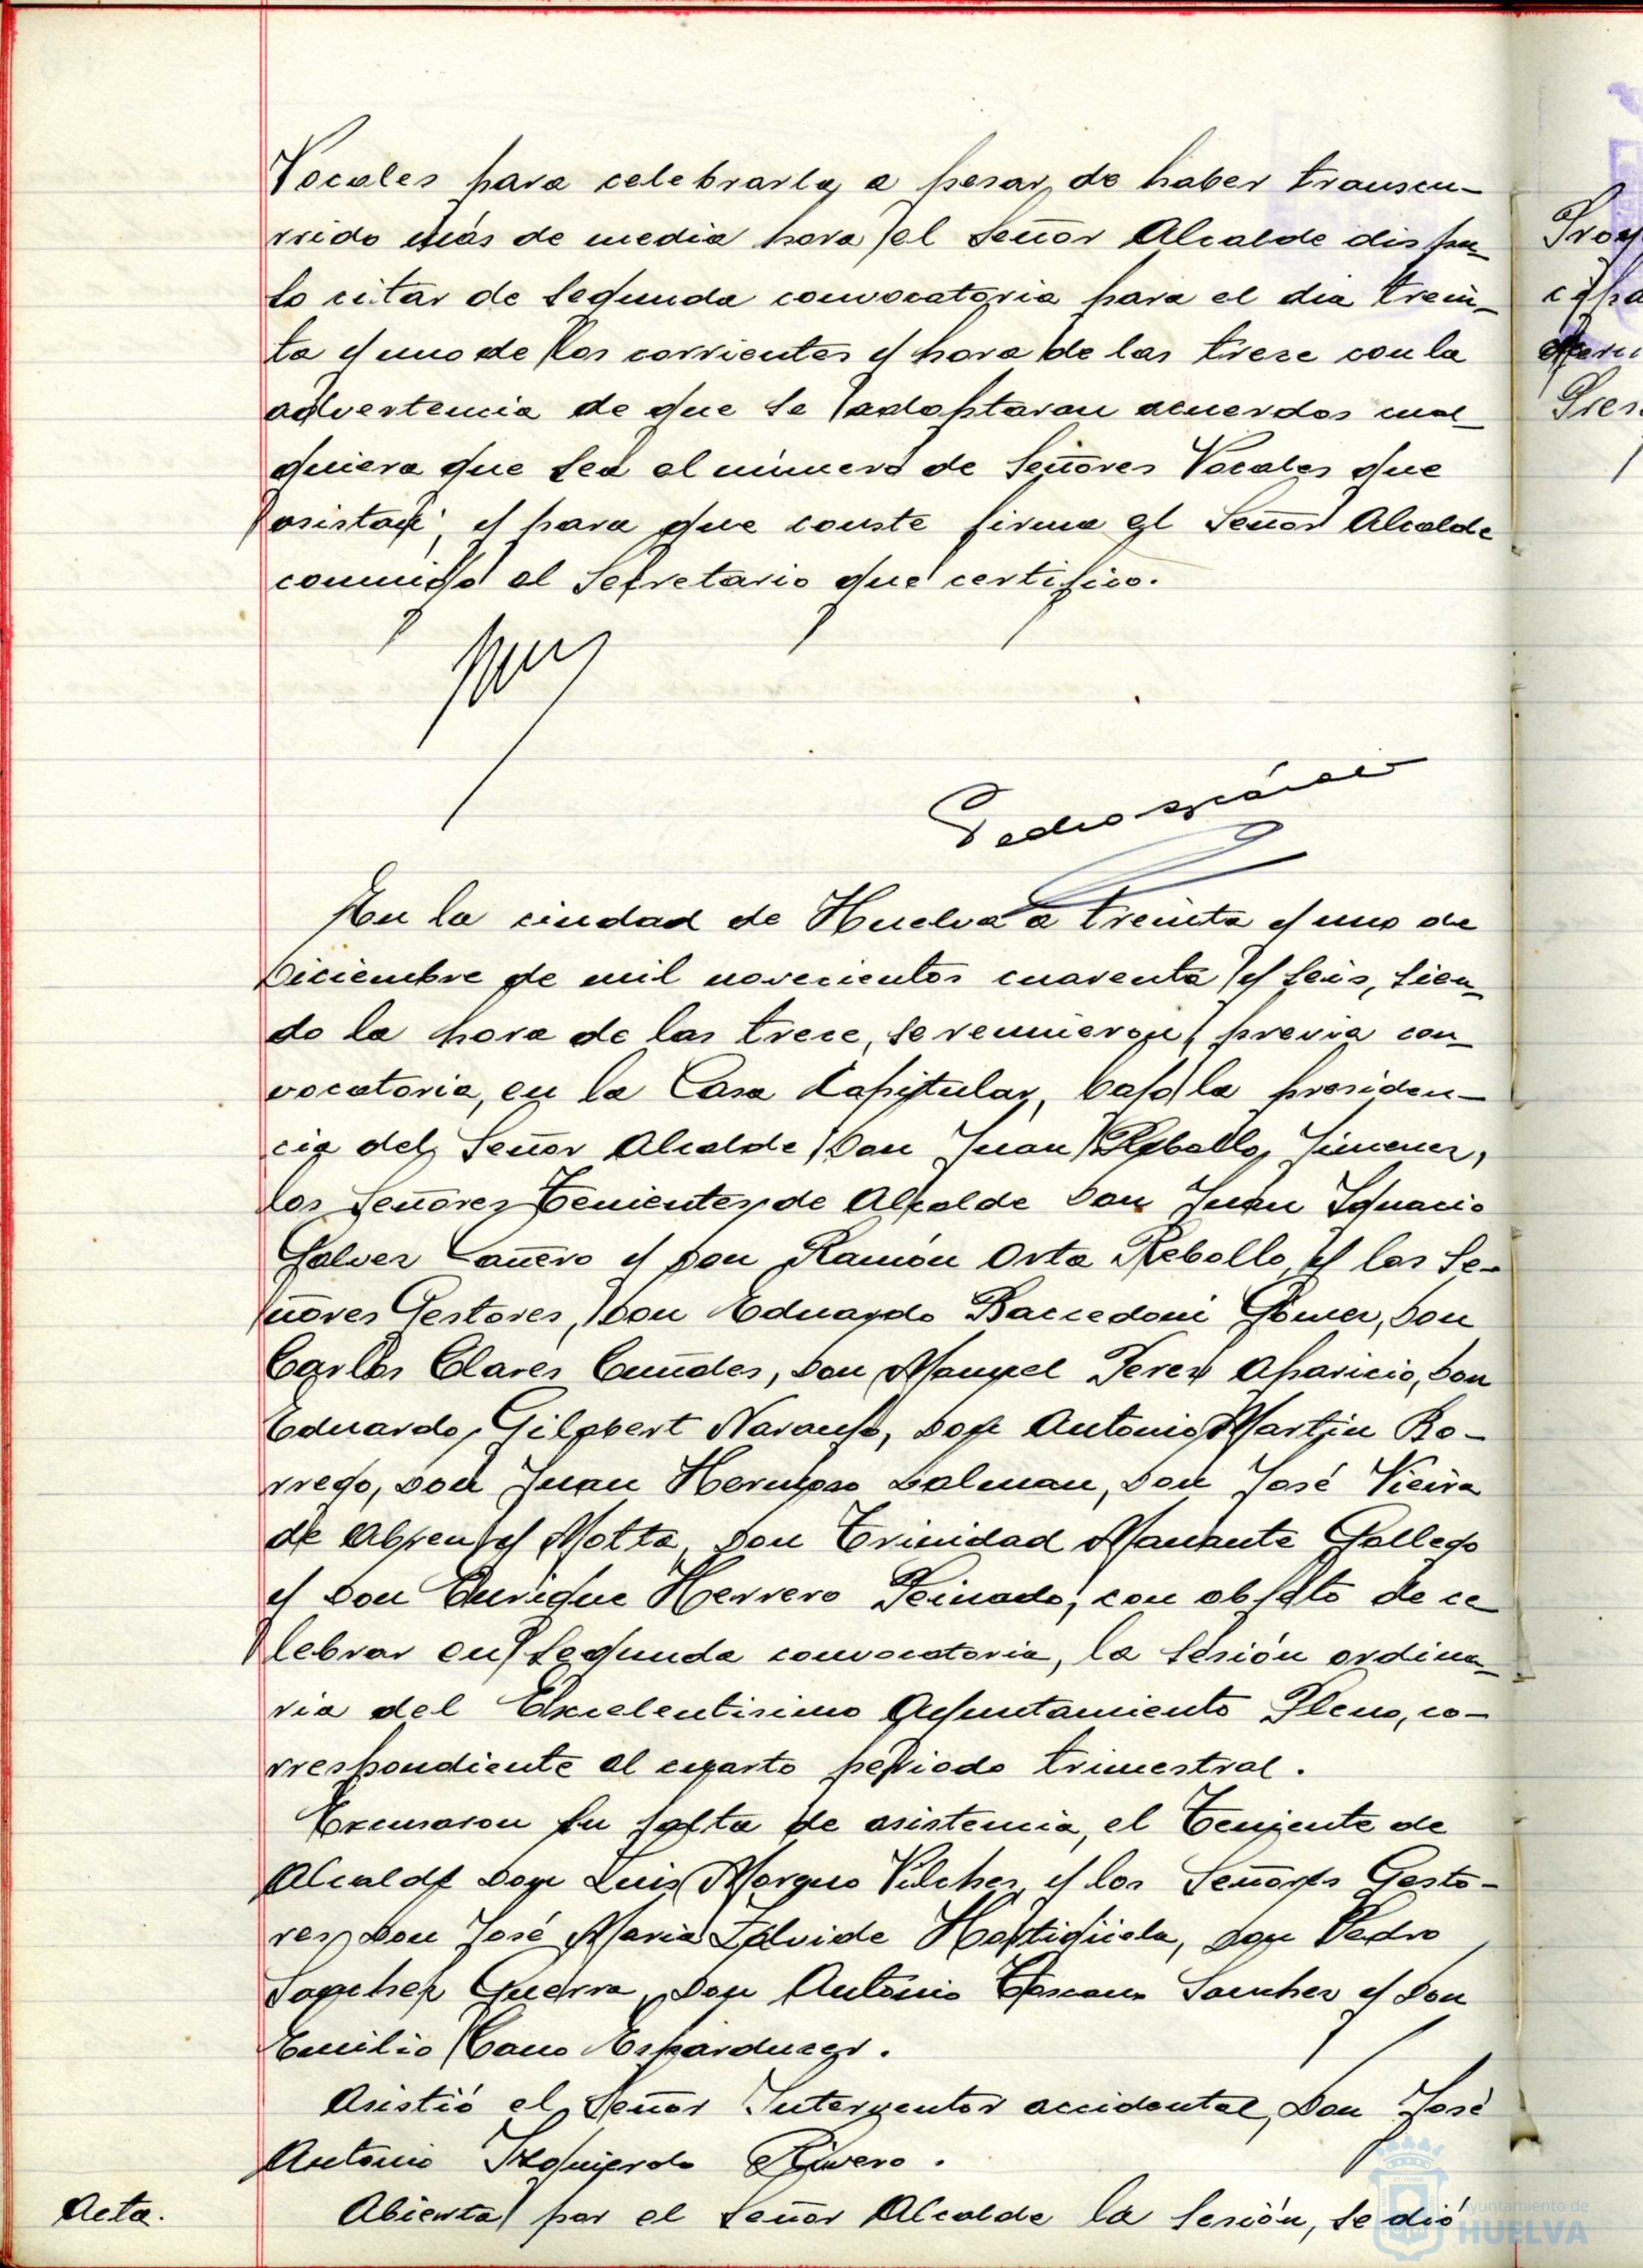 Vocales para celebrarla, a pesar de haber transcu-
rrido más de media hora, el Señor Alcalde dispu-
so citar de segunda convocatoria para el dia trein-
ta y uno de los corrientes y hora de las trece con la
advertencia de que se adoptaran acuerdos cual-
quiera que sea el número de Señores Vocales que
asistan; y para que conste firma el Señor Alcalde
conmigo el Secretario que certifico.
Pedro
En la ciudad de Huelva a treinta y uno de
Diciembre de mil novecientos cuarenta y seis, sien-
do la hora de las trece, se reunieron, previa con-
vocatoria, en la Casa Capitular, bajo la presiden-
cia del Señor Alcalde Don Juan Rebollo Jimenez,
los Señores Tenientes de Alcalde Don Juan Ignacio
Galvez Cañero y Don Ramón Orta Rebollo y los Se-
ñores Gestores, Don Eduardo Baccedoni Gómez, Don
Carlos Clares Cundes, Don Manuel Perez Aparicio, Don
Eduardo Gilabert Naranjo, Don Antonio Martin Bo-
rrego, Don Juan Hermoso Dalman, Don José Vieira
de Abreu y Motta, Don Trinidad Manzante Gallego
y Don Enrique Herrero Peinado, con objeto de ce-
lebrar en segunda convocatoria, la sesión ordina-
ria del Excelentisimo Ayuntamiento Pleno, co-
rrespondiente al cuarto periodo trimestral.
Excusaron su falta de asistencia, el Teniente de
Alcalde Don Luis Morgue Vilches y los Señores Gesto-
res Don José Maria Zalvide Hortigüela, Don Pedro
Sanchez Guerra, Don Antonio Toscano Sanchez y Don
Emilio Cano Esparducer.
Asistió el Señor Interventor accidental, Don José
Antonio Izquierdo Rivero.
Acta.
Abierta por el Señor Alcalde la sesión, se dió
Ayuntamiento de
HUELVA